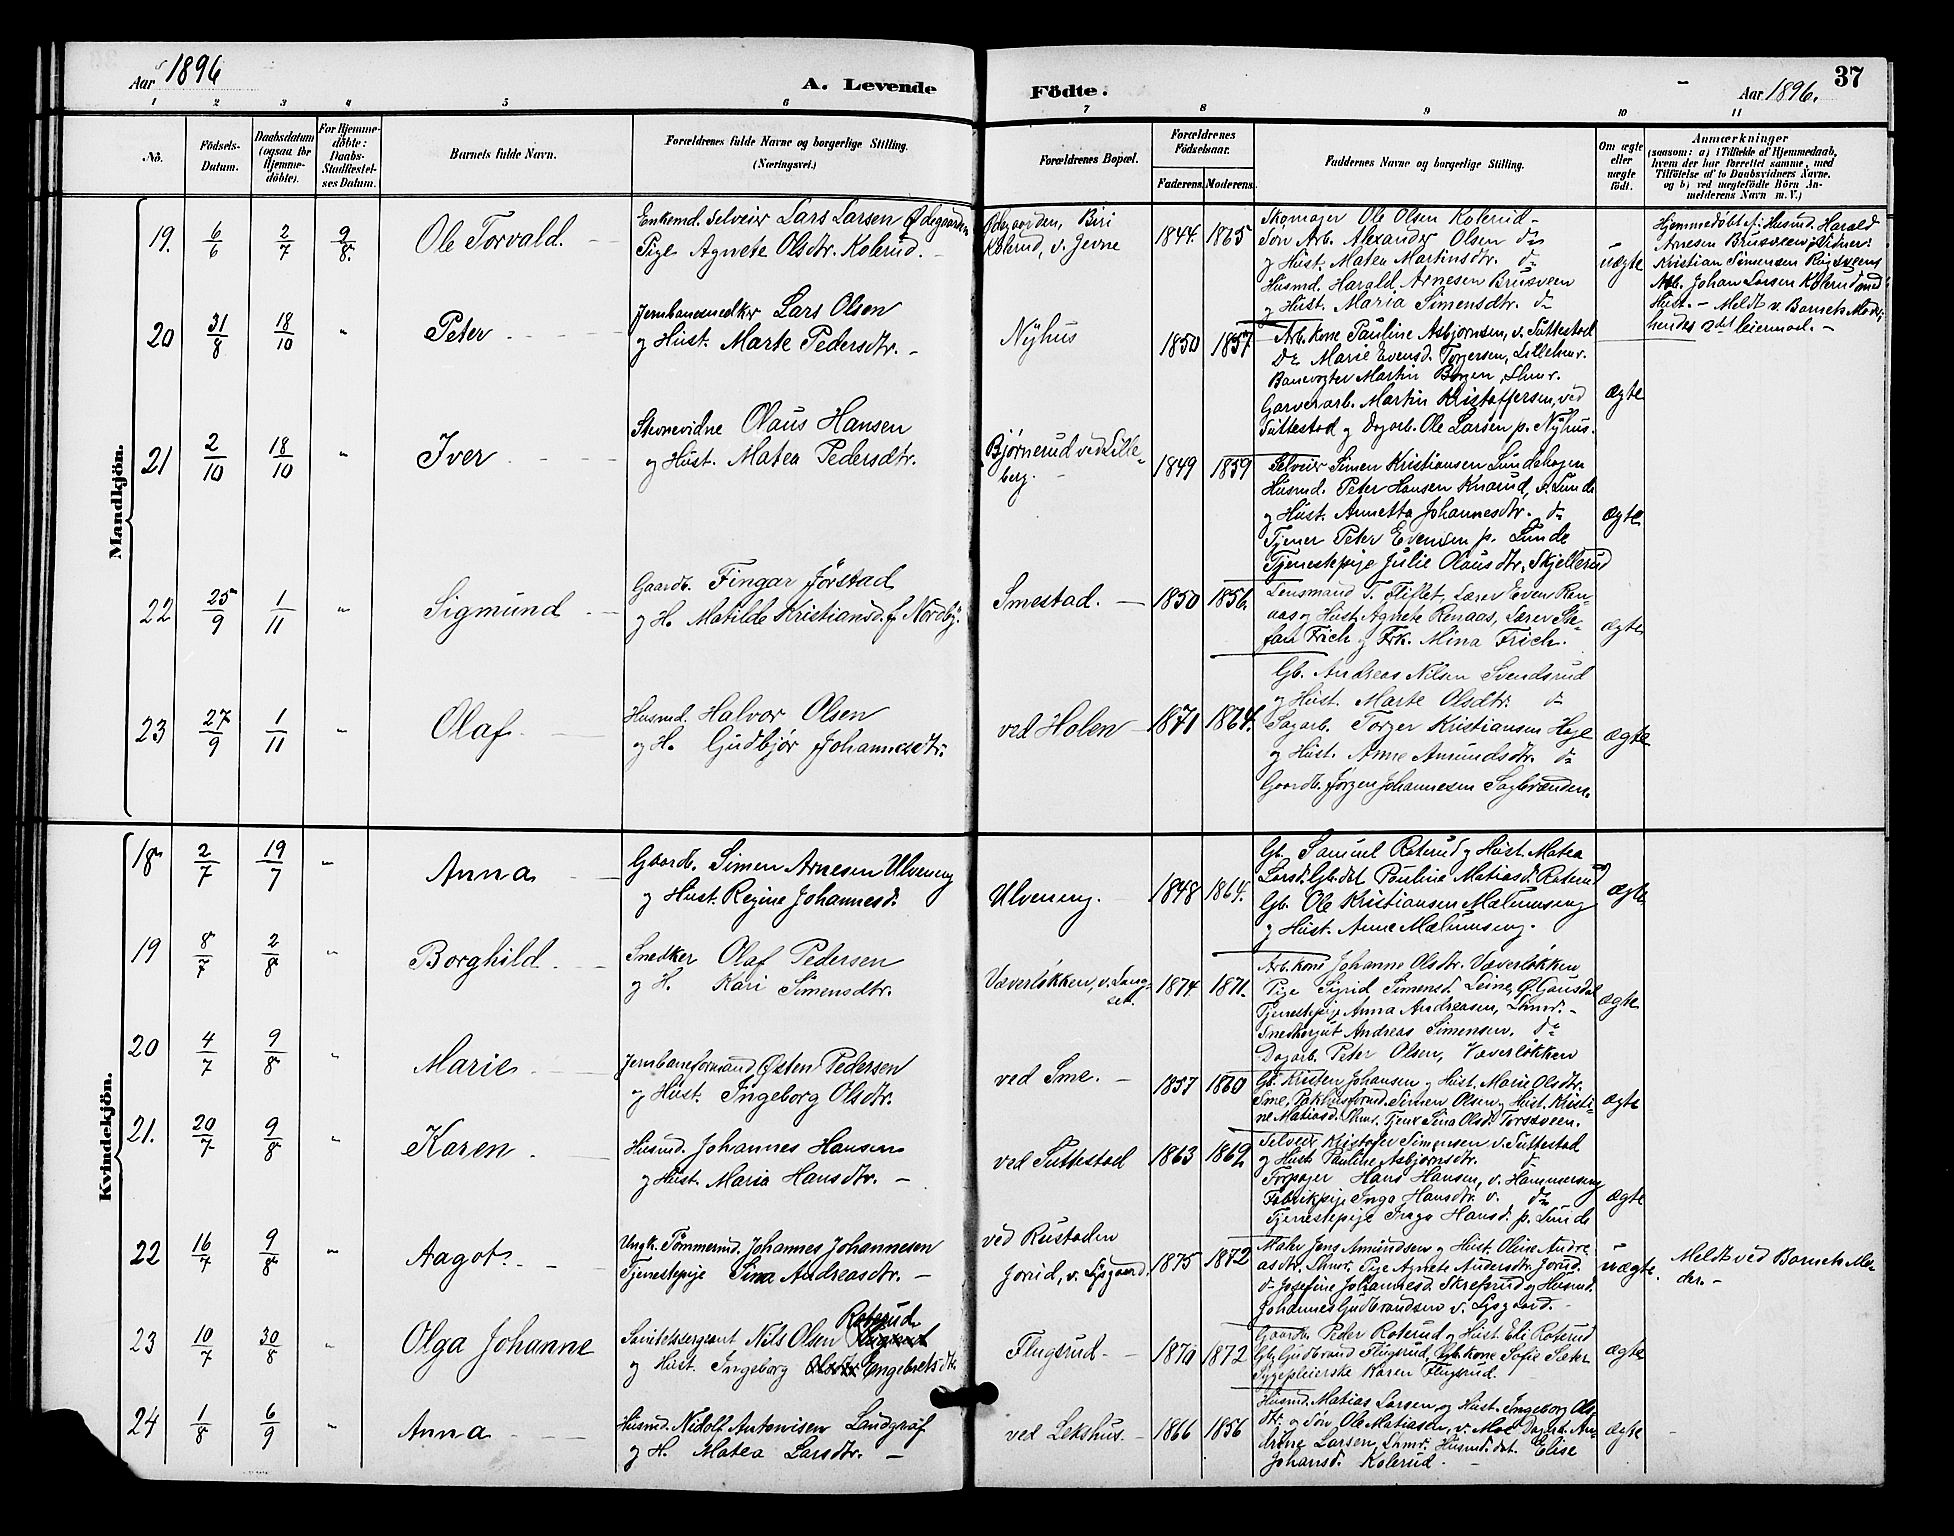 Aar 1896
A. Levende Födte.
Aar 1896.
37
1 2 3 4 5 6 7 8 9 10 11
No.
Födsels-Datum.
Daabsdatum (ogsaa for Hjemme-döbte).
For Hjemme-döbte: Daabs-Stadfæstel-ses Datum.
Barnets fulde Navn.
Forældrenes fulde Navne og borgerlige Stilling. (Næringsvei.)
Forældrenes Bopæl.
Forældrenes Födselsaar.
Faderens. Moderens.
Faddernes Navne og borgerlige Stilling.
Om ægte eller uægte födt.
Anmærkninger
(saasom: a) i Tilfælde af Hjemmedaab, hvem der har forrettet samme, med Tilföielse af to Daabsvidners Navne, og b) ved uægtefödte Börn Anmelderens Navn m. V.)
Mandkjön.
19. 6/6 2/7 9/8. Ole Torvald.
Enkemd. Selveier Lars Larsen Ødegaarden
Pige Agnete Olsdtr. Kolerud.
Ødegaarden, Biri
Kolerud, v. Jevne
1844. 1865
Skomager Ole Olsen Kolerud
Søn Arb. Alexander Olsen do
og Hust. Matea Martinsdtr. do
Husmd. Harald Arnesen Brusveen
og Hust. Maria Simensdtr. do
uægte
Hjemmedøbt af Husmd. Harald
Arnesen Brusveen; Vidner:
Kristian Simensen Ringsveen
Arb. Johan Larsen Kolerud med
Hust. - Meldt v. Barnets Moder,
hendes 2det leiermaal. -
20 31/8 18/10 " Peter
Jernbanesnedker Lars Olsen
og Hust. Marte Pedersdtr.
Nyhus
1850 1857
Arb. kone Pauline Asbjørnsen, v. Suttestad
Do Marie Evensd. Torgersen, Lillehmr.
Banevogter Martin Borgen, Lhmr.
Garverarb. Martin Kristoffersen, ved
Suttestad og Dagarb. Ole Larsen p. Nyhus.
ægte
21 2/10 18/10 " Iver
Skovvidne Olaus Hansen
og Hust. Matea Pedersdtr.
Bjørnerud ved Lille-
berg.
1849 1859
Selveier Simen Kristiansen Lundehagen
Husmd. Peter Hansen Knarud, v. Lunde
og Hust. Annetta Johannesdtr. do
Tjener Peter Evensen p. Lunde
Tjenestepige Julie Olausdtr. Skjellerud
ægte
22 25/9 1/11 " Sigmund
Gaardb. Fingar Jörstad
og H. Matilde Kristiansd. f. Nordby.
Smestad.
1850 1856.
Lensmand T. Flittet, Lærer Even Ren-
aas og Hust. Agnete Renaas, Lærer Ste-
fan Frich og Frk. Mina Frich.
ægte
23 27/9 1/11 " Olaf
Husmd. Halvor Olsen
og H. Gudbjør Johannesdtr.
ved Holen
1871 1864.
Gb. Andreas Nilsen Svendsrud
og Hust. Marte Olsdtr. do
Sagarb. Torger Kristiansen Hage
og Hust. Anne Amundsdtr. do
Gaardb. Jørgen Johannesen Sagbrænden.
ægte
Kvindekjön.
18 2/7 19/7 " Anna
Gaardb. Simen Arnesen Ulveneng
og Hust. Regine Johannesd.
Ulveneng.
1848 1864.
Gb. Samuel Roterud og Hust. Matea
Larsd. Gb.det Pauline Matiasd. Roterud
Gb. Ole Kristiansen Mælumseng
og Hust. Anne Mælumseng.
ægte
19 8/7 2/8 " Borghild
Snedker Olaf Pedersen
og H. Kari Simensdtr.
Væverløkken, v. Lang-
set.
1874 1871.
Arb. kone Johanne Olsdtr. Væverløkken
Pige Sigrid Simensd. Leine, Ø. Gausdal
Tjenestepige Anna Andreasen, Lhmr.
Snedkergut Andreas Simensen, do
Dagarb. Peter Olsen, Væverløkken
ægte
20 4/7 9/8 " Marie
Jernbaneformand Østen Pedersen
og Hust. Ingeborg Olsdtr.
ved Sme.
1857 1860
Gb. Kristen Johansen og Hust. Marie Olsdtr.
Sme, Pakhusformd. Simen Olsen og Hust. Kristi-
ne Matiasd. Lhmr. Tjen. Sina Olsd. Torsveen.
ægte
21. 20/7 9/8 " Karen
Husmd. Johannes Hansen
og Hust. Maria Hansdtr.
ved Suttestad
1863 1869
Selveier Kristofer Simensen v. Suttestad
og Hust. Pauline Asbjørnsdtr. do
Torpager Hans Hansen, v. Hammerseng
Fabrikpige Inga Hansdtr. v. do
Tjenestepige Inga Hansd. p. Lunde
ægte
22 16/7 9/8 " Aagot
Ungk. Tömmermd. Johannes Johannesen
Tjenestepige Sina Andreasdtr.
ved Rustaden
Jorud, v. Lysgaard.
1875 1872
Maler Jens Amundsen og Hust. Oline Andre-
asdtr. Lhmr. Pige Agnete Andersdtr. Jorud.
do Josefine Johannesd. Skrefsrud og Husmd.
Johannes Gudbrandsen v. Lysgaard.
uægte.
Meldt ved Barnets Mo-
der.
23 10/7 30/8 " Olga Johanne
Roterud
Sanitetssergeant Nils Olsen
og Hust. Ingeborg Engebretsdtr.
Flugsrud.
1870 1872
Gaardb. Peder Roterud og Hust. Eli Roterud
Gb. Gudbrand Flugsrud, Gb. kone Sofie Sæter
Sygepleierske Karen Flugsrud.
ægte
24 1/8 6/9 " Anna
Husmd. Nidolf Antonisen Landgraf
og H. Matea Larsdtr.
ved Lekshus.
1866 1856
Husmd. Matias Larsen og Hust. Ingeborg Ols-
dtr. og Søn Ole Matiasen, v. Moe Dagarb. An-
Larsen, Lhmr. Husmd. det Elise
Johansd. Kolerud.
ægte